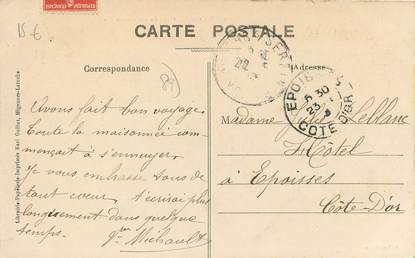 15 €
CARTE POSTALE
Correspondance
Adresse
89
Avons fait bon voyage
Toute la maisonnée com-
mençait à s'ennuyer.
Je vous embrasse tous de
tout cœur, t'écrirai plus
longuement dans quelque
temps.
Michault
Madame Leblanc
Hôtel
à Epoisses
Côte d'or
EPOISSES
5 30
23
COTE D'OR
22
Librairie-Papeterie-Imprimerie Migennes-Laroche